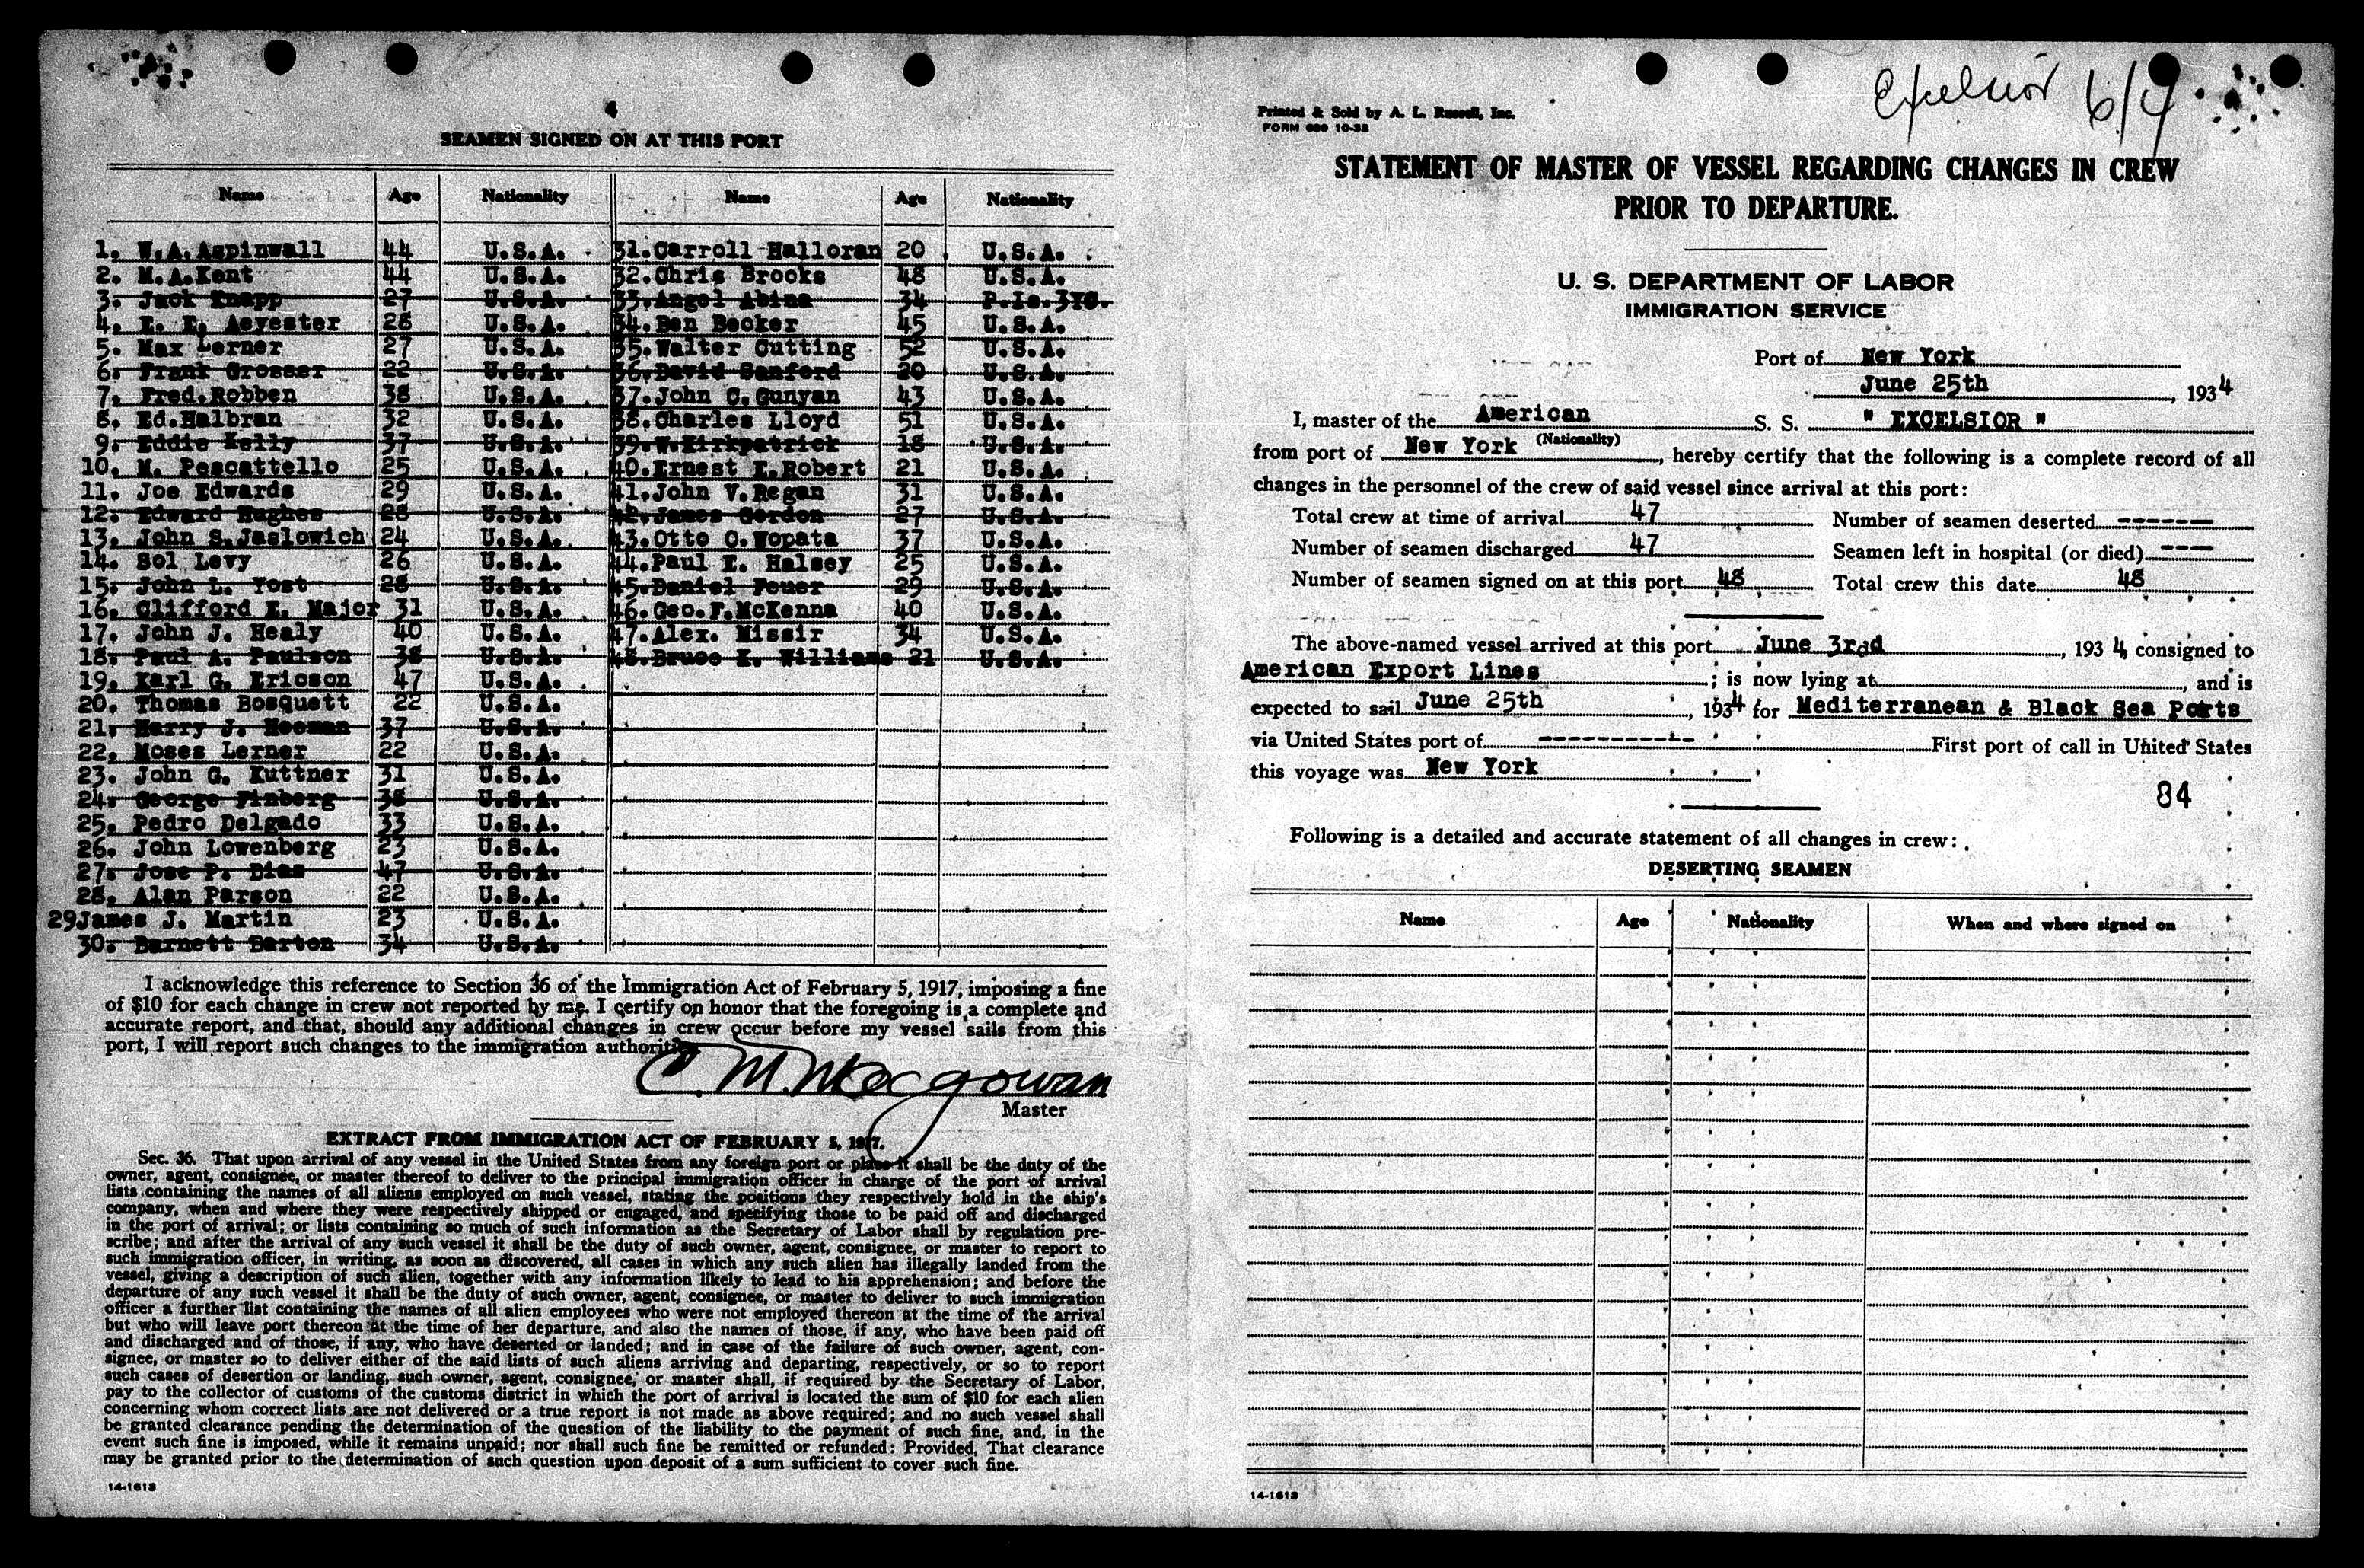 4
SEAMEN SIGNED ON AT THIS PORT
Name Age Nationality Name Age Nationality
1. W.A.Aspinwall 44 U.S.A. 31.Carroll Halloran 20 U.S.A.
2. M.A.Kent 44 U.S.A. 32.Chris Brooks 48 U.S.A.
3. Jack Knapp 27 U.S.A. 33.Angel Abina 34 P.Is.
4. E. E. Aeyester 28 U.S.A. 34.Ben Becker 45 U.S.A.
5. Max Lerner 27 U.S.A. 35.Walter Cutting 52 U.S.A.
6. Frank Grosser 22 U.S.A. 36.David Sanford 20 U.S.A.
7. Fred.Robben 38 U.S.A. 37.John C.Gunyan 43 U.S.A.
8. Ed.Halbran 32 U.S.A. 38.Charles Lloyd 51 U.S.A.
9. Eddie Kelly 37 U.S.A. 39.W.Kirkpatrick 18 U.S.A.
10. M. Pescattello 25 U.S.A. 40.Ernest E.Robert 21 U.S.A.
11. Joe Edwards 29 U.S.A. 41.John V.Regan 31 U.S.A.
12. Edward Hughes 28 U.S.A. 42.James Gordon 27 U.S.A.
13. John S.Jaslowich 24 U.S.A. 43.Otto O.Wopata 37 U.S.A.
14. Sol Levy 26 U.S.A. 44.Paul E. Halsey 25 U.S.A.
15. John L. Yost 28 U.S.A. 45.Daniel Feuer 29 U.S.A.
16. Clifford E. Major 31 U.S.A. 46.Geo.F.McKenna 40 U.S.A.
17. John J. Healy 40 U.S.A. 47.Alex. Missir 34 U.S.A.
18. Paul A. Paulson 38 U.S.A. 48.Bruce K. Williams 21 U.S.A.
19. Karl G. Ericson 47 U.S.A.
20. Thomas Bosquett 22 U.S.A.
21. Harry J. 37 U.S.A.
22. Moses Lerner 22 U.S.A.
23. John G. Kuttner 31 U.S.A.
24. George Finberg 38 U.S.A.
25. Pedro Delgado 33 U.S.A.
26. John Lowenberg 23 U.S.A.
27. Jose P. Dias 47 U.S.A.
28. Alan Parson 22 U.S.A.
29James J. Martin 23 U.S.A.
30. Barnett Barton 34 U.S.A.
I acknowledge this reference to Section 36 of the Immigration Act of February 5, 1917, imposing a fine
of $10 for each change in crew not reported by me. I certify on honor that the foregoing is a complete and
accurate report, and that, should any additional changes in crew occur before my vessel sails from this
port, I will report such changes to the immigration authorities.
C. M. Macgowan
Master
EXTRACT FROM IMMIGRATION ACT OF FEBRUARY 5, 1917.
Sec. 36. That upon arrival of any vessel in the United States from any foreign port or place it shall be the duty of the
owner, agent, consignee, or master thereof to deliver to the principal immigration officer in charge of the port of arrival
lists containing the names of all aliens employed on such vessel, stating the positions they respectively hold in the ship's
company, when and where they were respectively shipped or engaged, and specifying those to be paid off and discharged
in the port of arrival; or lists containing so much of such information as the Secretary of Labor shall by regulation pre-
scribe; and after the arrival of any such vessel it shall be the duty of such owner, agent, consignee, or master to report to
such immigration officer, in writing, as soon as discovered, all cases in which any such alien has illegally landed from the
vessel, giving a description of such alien, together with any information likely to lead to his apprehension; and before the
departure of any such vessel it shall be the duty of such owner, agent, consignee, or master to deliver to such immigration
officer a further list containing the names of all alien employees who were not employed thereon at the time of the arrival
but who will leave port thereon at the time of her departure, and also the names of those, if any, who have been paid off
and discharged and of those, if any, who have deserted or landed; and in case of the failure of such owner, agent, con-
signee, or master so to deliver either of the said lists of such aliens arriving and departing, respectively, or so to report
such cases of desertion or landing, such owner, agent, consignee, or master shall, if required by the Secretary of Labor,
pay to the collector of customs of the customs district in which the port of arrival is located the sum of $10 for each alien
concerning whom correct lists are not delivered or a true report is not made as above required; and no such vessel shall
be granted clearance pending the determination of the question of the liability to the payment of such fine, and, in the
event such fine is imposed, while it remains unpaid; nor shall such fine be remitted or refunded: Provided, That clearance
may be granted prior to the determination of such question upon deposit of a sum sufficient to cover such fine.
14-1613
Excelsior 6/4
Printed & Sold by A. L. Russell, Inc.
FORM 689 10-32
STATEMENT OF MASTER OF VESSEL REGARDING CHANGES IN CREW
PRIOR TO DEPARTURE.
U. S. DEPARTMENT OF LABOR
IMMIGRATION SERVICE
Port of New York
June 25th, 1934
I, master of the American S. S. " EXCELSIOR "
(Nationality)
from port of New York, hereby certify that the following is a complete record of all
changes in the personnel of the crew of said vessel since arrival at this port:
Total crew at time of arrival 47 Number of seamen deserted -------
Number of seamen discharged 47 Seamen left in hospital (or died) ----
Number of seamen signed on at this port 48 Total crew this date 48
The above-named vessel arrived at this port June 3rdd, 1934, consigned to
American Export Lines; is now lying at, and is
expected to sail June 25th, 1934 for Mediterranean & Black Sea Ports
via United States port of ----------- First port of call in United States
this voyage was New York
84
Following is a detailed and accurate statement of all changes in crew:
DESERTING SEAMEN
Name Age Nationality When and where signed on
14-1613